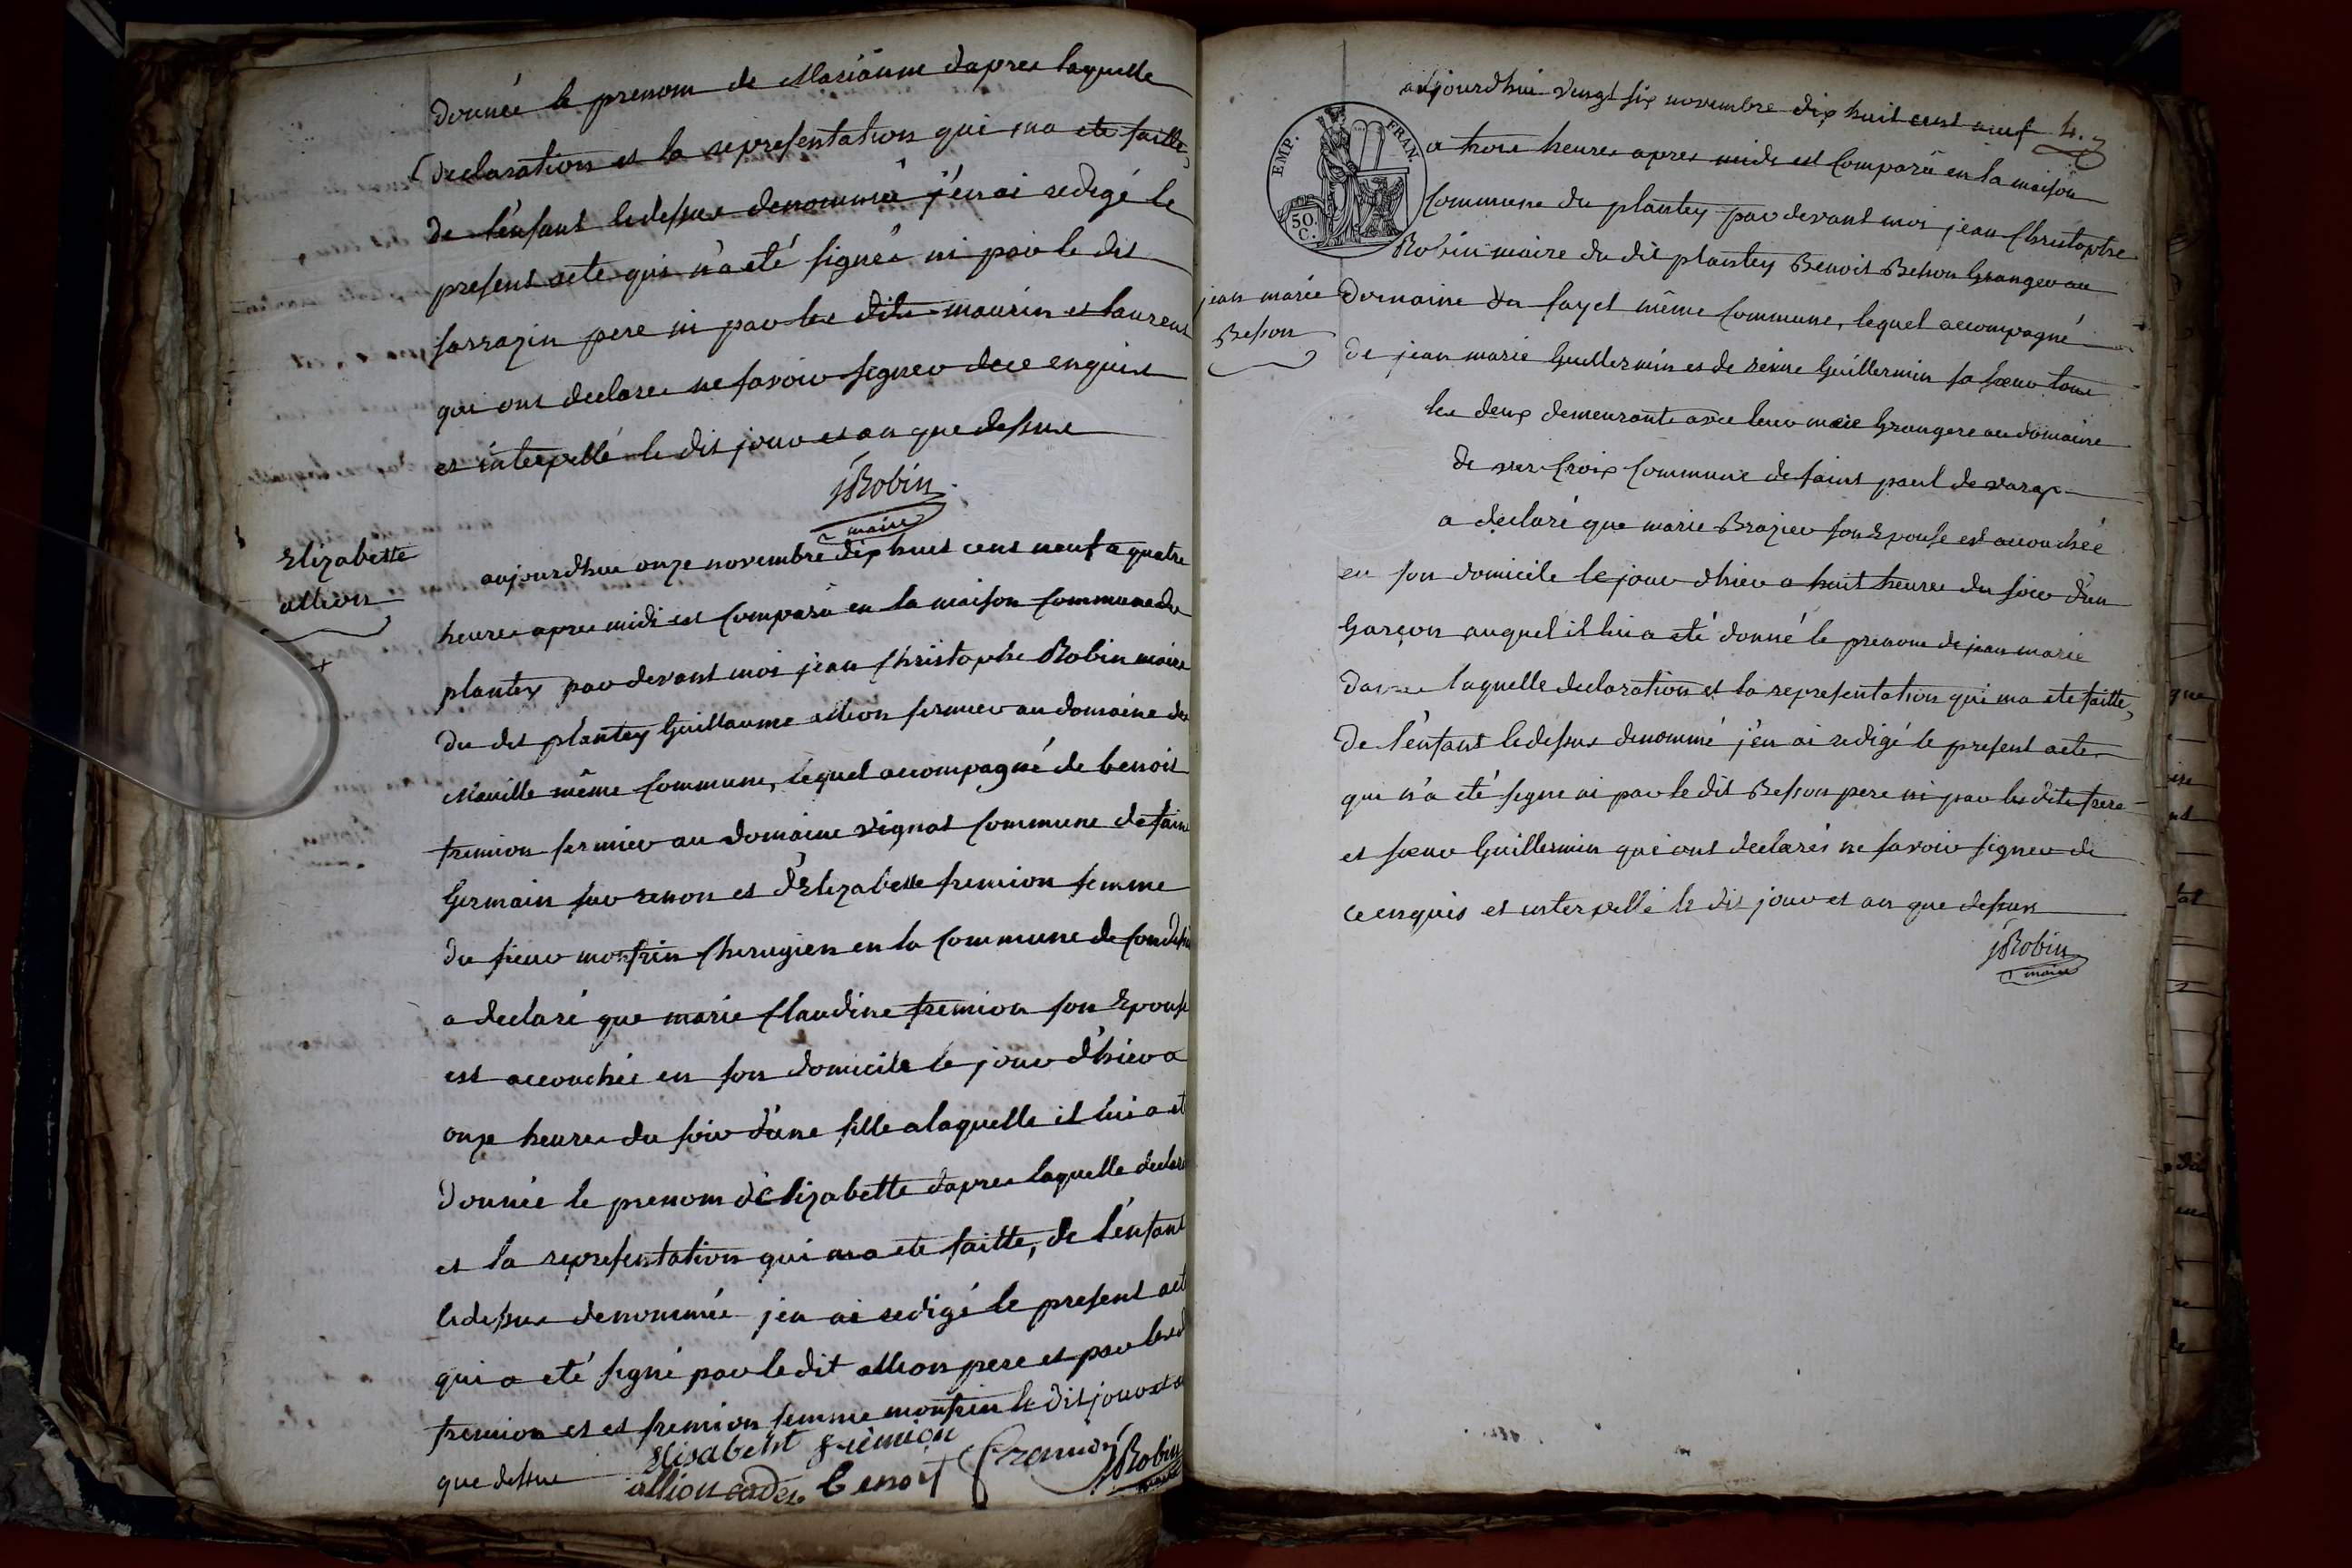 donnée le prenom de Marianne dapres laquelle
declaration et la representation qui ma ete faitte,
de l'enfant ledessus denommée j'en ai redigé le
present acte qui n'a eté signée ni par le dit
sarrazin pere ni par les dits maurin et laurent
qui ont declarés ne savoir signer de ce enquis
et interpellé le dit jour et an que dessus
JRobin
maire
Elizabette
allion
aujourdhui onze novembre dix huit cent neuf a quatre
heures apres midi est comparu en la maison commune du
plantey par devant moi jean Christophe Robin maire
du dit plantey Guillaume allion fermier au domaine des
même commune, lequel accompagné de benoit
fremion fermier au domaine vignat commune de saint
Germain sur renon et d'Elizabette fremion femme
du sieur montrin chirugien en la commune de
a declaré que marie Claudine fremion son Epouse
est accouchée en son domicile le jour d'hier a
onze heures du soir d'une fille a laquelle il lui a et
donnée le prenom d'Elizabette dapres laquelle declar
et la representation qui ma ete faitte, de l'enfant
ledessus denommée jen ai redigé le present act
qui a eté signé par le dit allion pere et par
fremion et et fremion femme montrin le dit jour et a
que dessus
Elisabeht fremion
allion cadet benoit fremion JRobin
maire
aujourdhui vingt six novembre dix huit cent neuf 4.
EMP. FRAN.
50 C.
a trois heures apres midi est comparu en la maison
commune du plantey par devant moi jean Christophe
Robin maire du dit plantey Benoit Besson Granger au
jean marie
Besson
domaine du fayet même commune, lequel accompagné
de jean marie Guillermin et de reine Guillermin sa soeur tous
les deux demeurants avec leur mere Grangere au domaine
de vers croix commune de saint paul de varax
a declaré que marie Brazier son Epouse est accouchée
en son domicile le jour dhier a huit heures du soir d'un
Garçon auquel il lui a eté donné le prenom de jean marie
dapres laquelle declaration et la representation qui ma ete faitte,
de l'enfant ledessus denommé j'en ai redigé le present acte
qui n'a eté signe ni par le dit Besson pere ni par les dits frere
et soeur Guillermin qui ont declarés ne savoir signer de
ce enquis et interpellé le dit jour et an que dessus
JRobin
maire